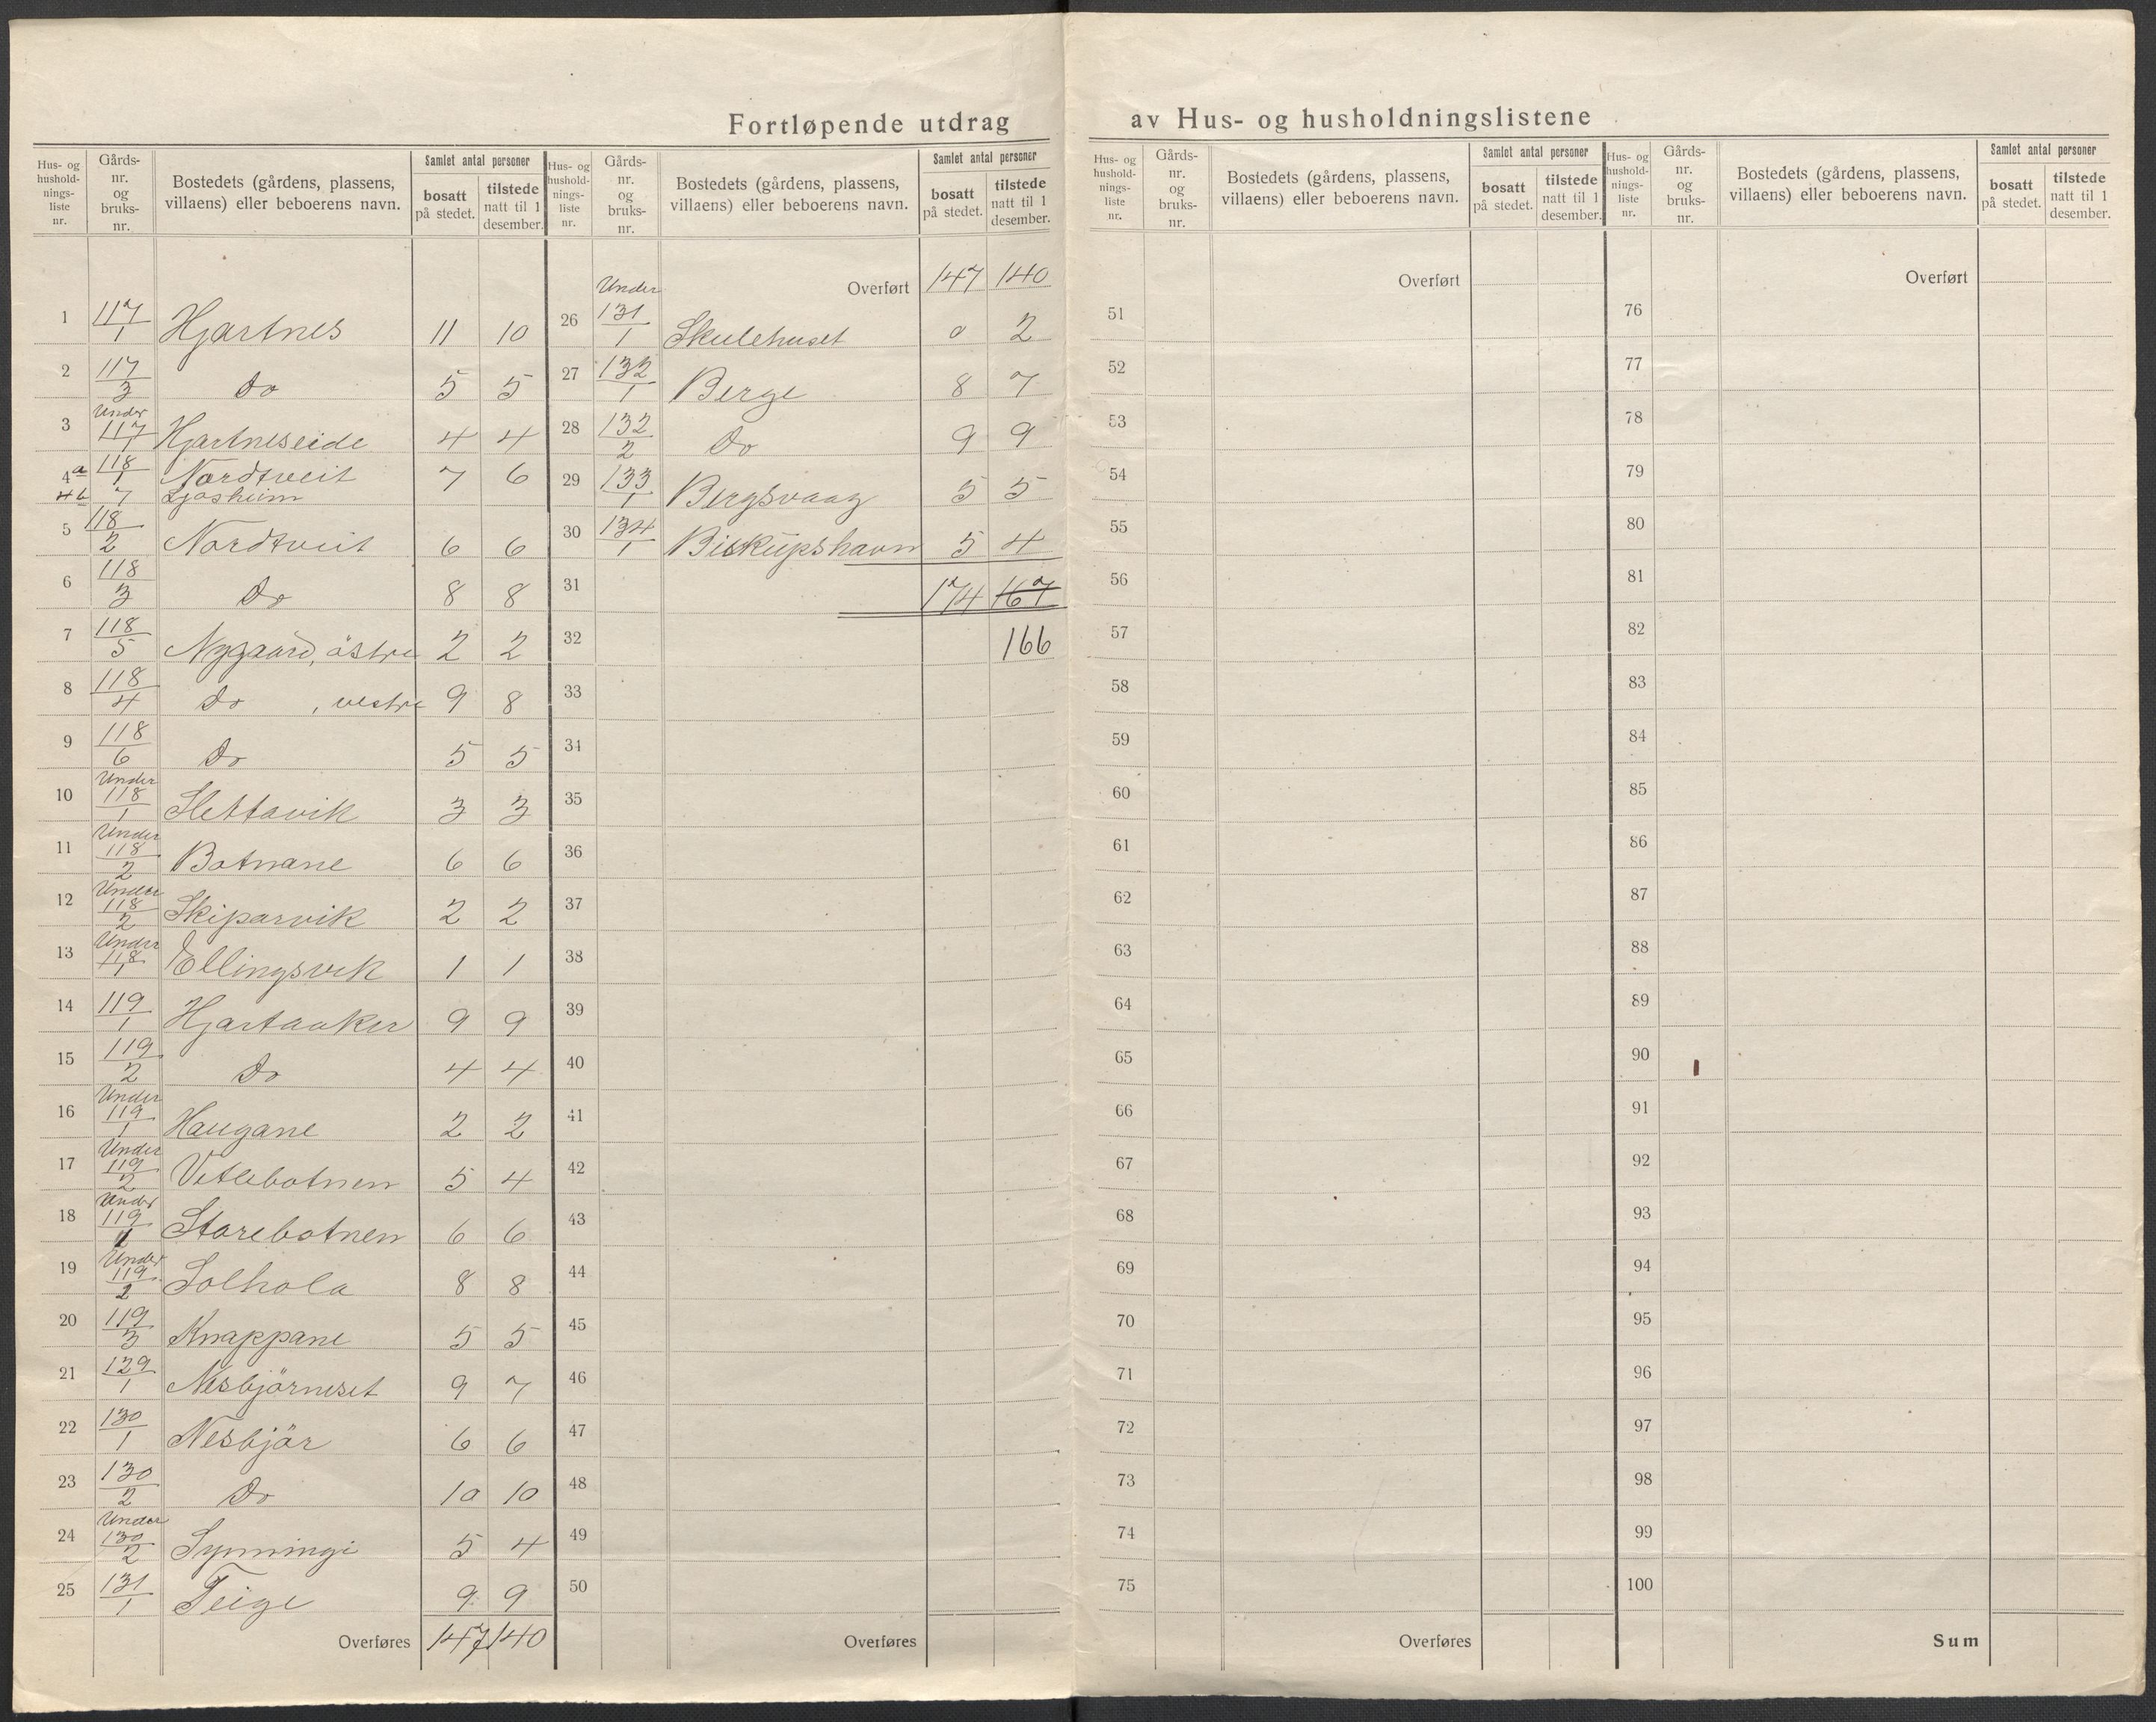 Fortløpende utdrag av Hus- og husholdningslistene
Hus- og husholdnings-liste nr. | Gårds-nr. og bruks-nr. | Bostedets (gårdens, plassens, villaens) eller beboerens navn. | Samlet antal personer | bosatt på stedet. | tilstede natt til 1 desember.
1 117/1 Hjartnes 11 10
2 117/3 do 5 5
3 Under 117/1 Hjartneseide 4 4
4a 118/1 Nordtveit 7 6
4b 7 Ljosheim
5 118/2 Nordtveit 6 6
6 118/3 do 8 8
7 118/5 Nygaard, östre 2 2
8 118/4 do , vestre 9 8
9 118/6 do 5 5
10 Under 118/1 Slettavik 3 3
11 Under 118/2 Botnane 6 6
12 Under 118/2 Skiparvik 2 2
13 Under 118/1 Ellingsvik 1 1
14 119/1 Hjartaaker 9 9
15 119/2 do 4 4
16 Under 119/1 Haugane 2 2
17 Under 119/2 Vetlebotnen 5 4
18 Under 119/1 Storebotnen 6 6
19 Under 119/2 Solhola 8 8
20 119/3 Knappane 5 5
21 129/1 Nesbjörneset 9 7
22 130/1 Nesbjör 6 6
23 130/2 do 10 10
24 Under 130/2 Synningi 5 4
25 131/1 Teige 9 9
Overføres 147 140
Hus- og husholdnings-liste nr. | Gårds-nr. og bruks-nr. | Bostedets (gårdens, plassens, villaens) eller beboerens navn. | Samlet antal personer | bosatt på stedet. | tilstede natt til 1 desember.
Overført 147 140
26 Under 131/1 Skulehuset 0 2
27 132/1 Berge 8 7
28 132/2 do 9 9
29 133/1 Bergsvaag 5 5
30 134/1 Biskupshavn 5 4
31 174 167
32 166
33
34
35
36
37
38
39
40
41
42
43
44
45
46
47
48
49
50
Overføres
Hus- og husholdnings-liste nr. | Gårds-nr. og bruks-nr. | Bostedets (gårdens, plassens, villaens) eller beboerens navn. | Samlet antal personer | bosatt på stedet. | tilstede natt til 1 desember.
Overført
51
52
53
54
55
56
57
58
59
60
61
62
63
64
65
66
67
68
69
70
71
72
73
74
75
Overføres
Hus- og husholdnings-liste nr. | Gårds-nr. og bruks-nr. | Bostedets (gårdens, plassens, villaens) eller beboerens navn. | Samlet antal personer | bosatt på stedet. | tilstede natt til 1 desember.
Overført
76
77
78
79
80
81
82
83
84
85
86
87
88
89
90
91
92
93
94
95
96
97
98
99
100
Sum